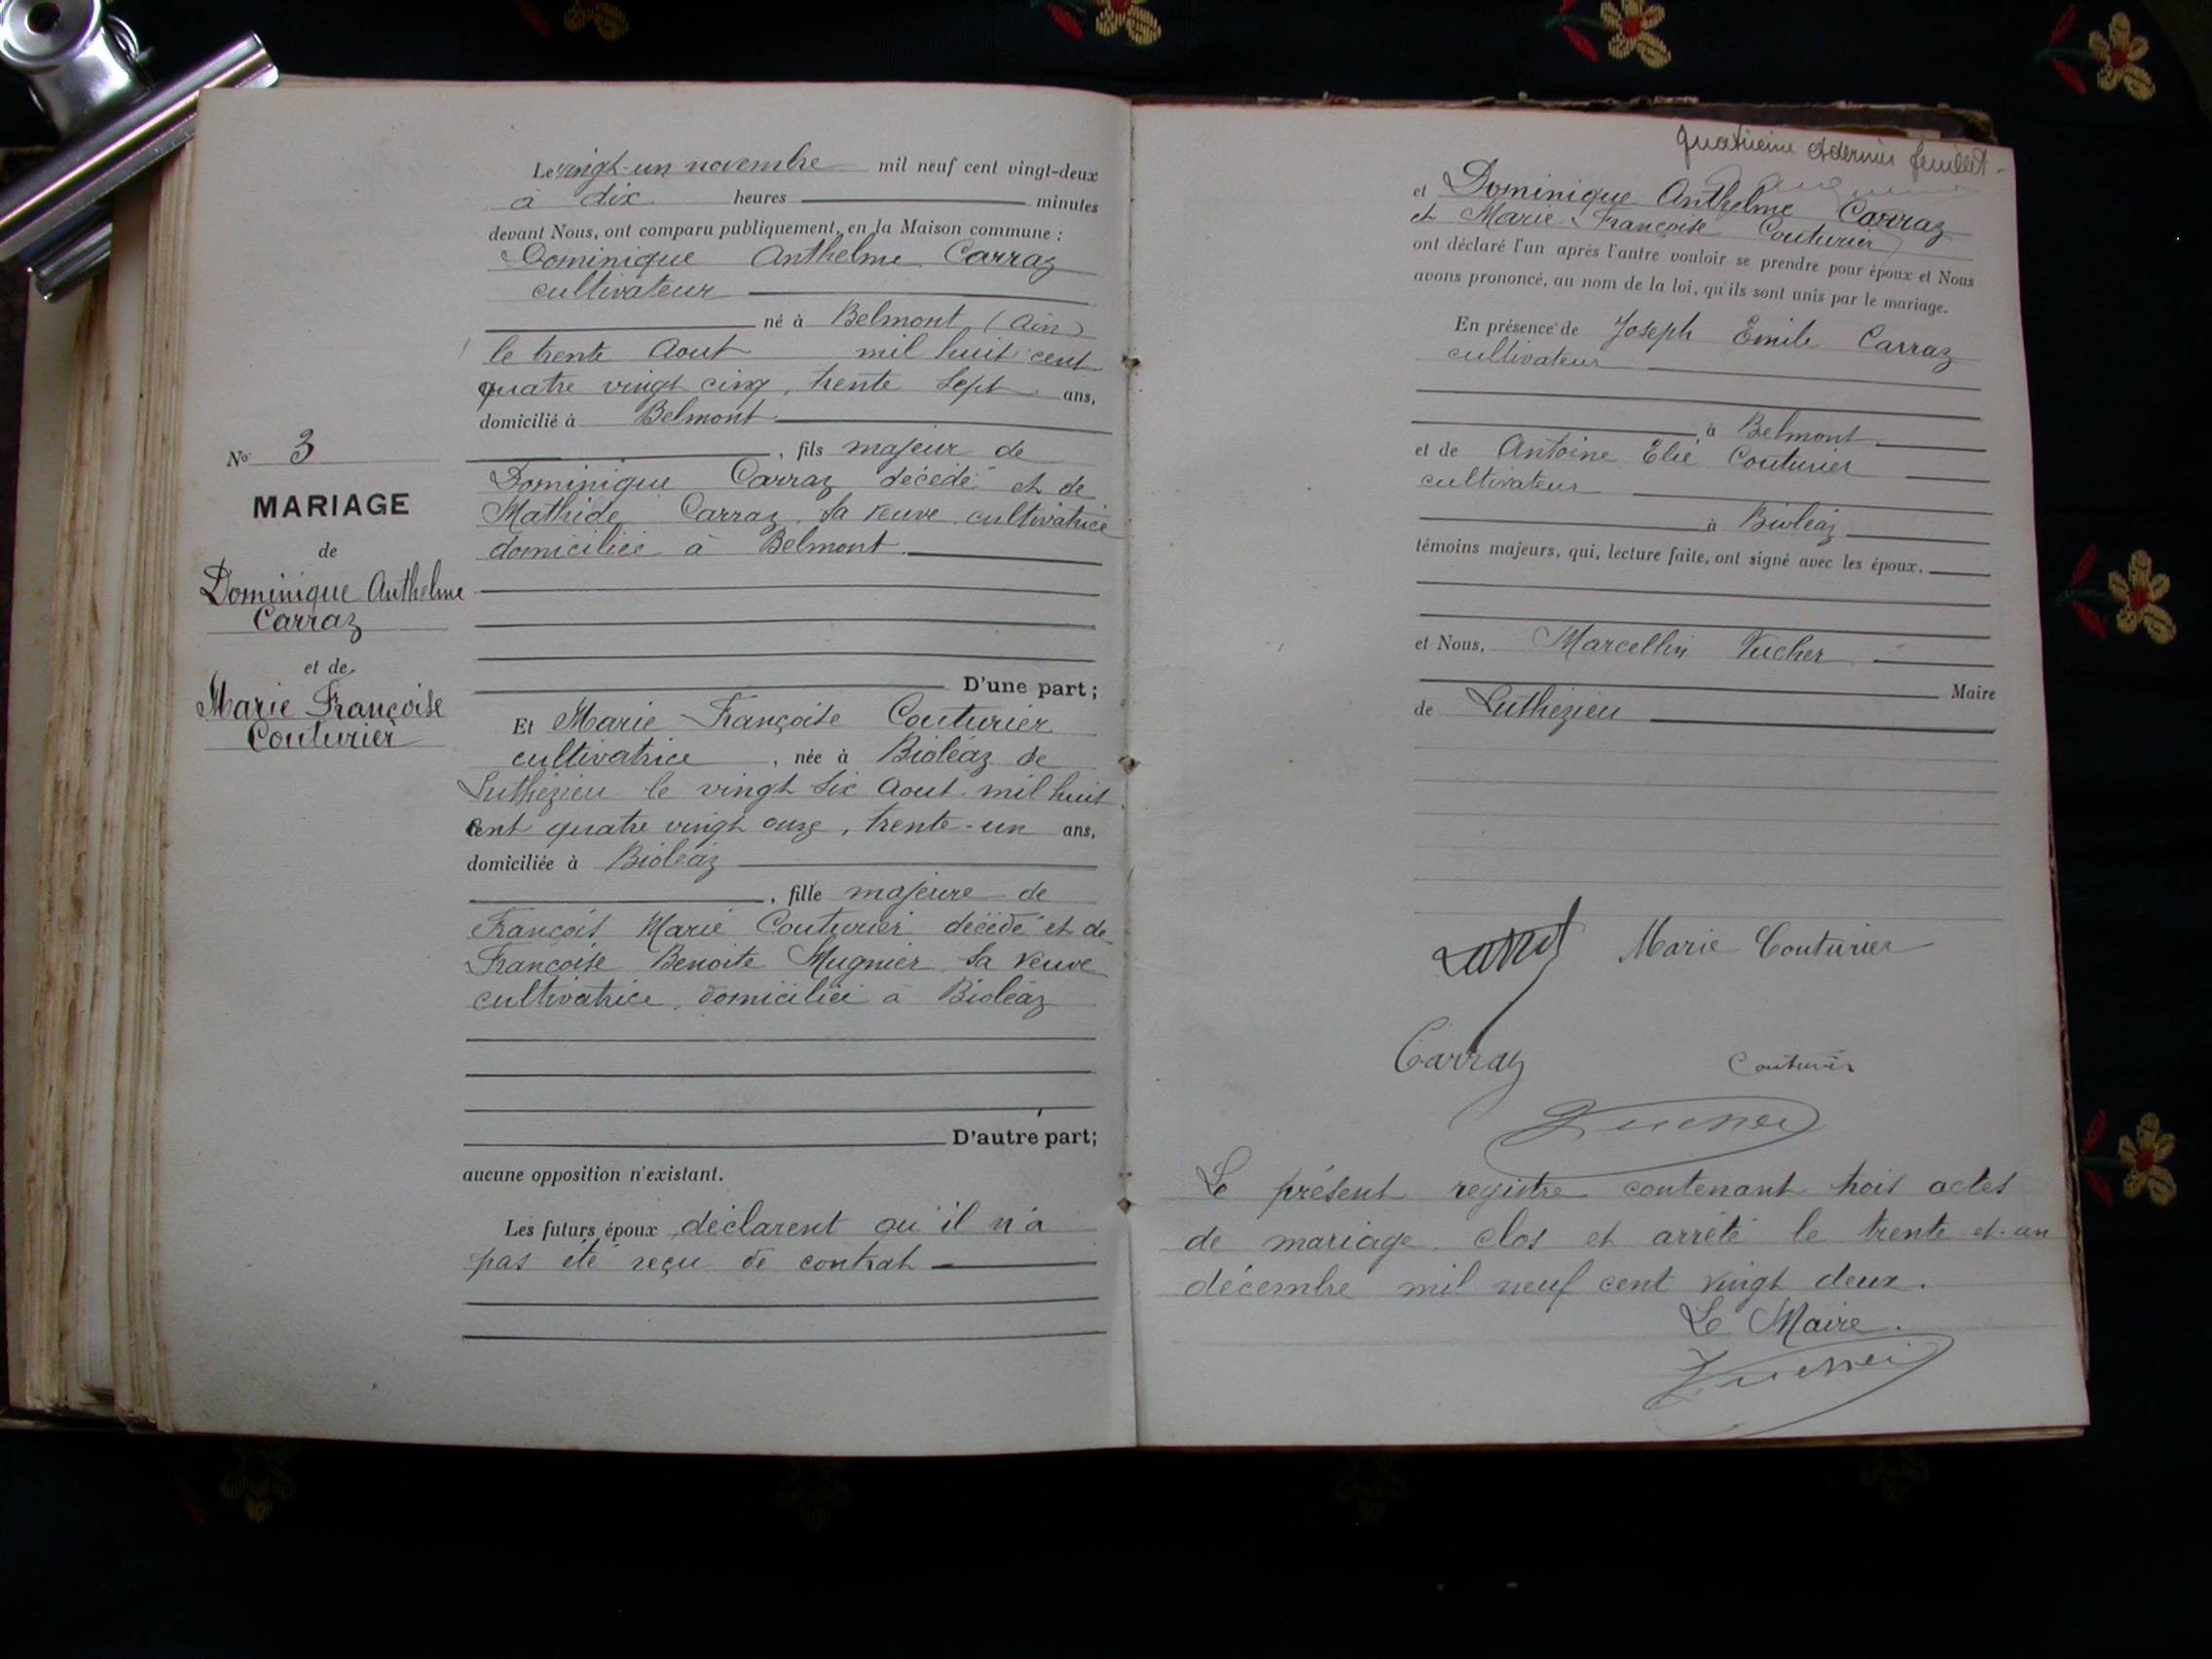 Le vingt-un novembre mil neuf cent vingt-deux
à dix heures minutes
devant Nous, ont comparu publiquement, en la Maison commune :
Dominique Anthelme Carraz
cultivateur
né à Belmont (Ain)
le trente Aout mil huit cent
quatre vingt cinq, trente sept ans,
domicilié à Belmont
, fils majeur de
Dominique Carraz décédé et de
Mathide Carraz sa veuve cultivatrice
domiciliée à Belmont
D'une part;
Et Marie Françoise Couturier
cultivatrice, née à Bioléaz de
Luthézieu le vingt six Aout mil huit
cent quatre vingt onze, trente-un ans,
domiciliée à Bioléaz
, fille majeure de
François Marie Couturier décédé et de
Françoise Benoite Mugnier sa veuve
cultivatrice, domiciliée à Bioléaz
D'autre part;
aucune opposition n'existant.
Les futurs époux déclarent qu'il n'a
pas été reçu de contrat
No 3
MARIAGE
de
Dominique Anthelme
Carraz
et de
Marie Françoise
Couturier
quatrième et dernier feuillet
et Dominique Anthelme Carraz
et Marie Françoise Couturier
ont déclaré l'un après l'autre vouloir se prendre pour époux et Nous
avons prononcé, au nom de la loi, qu'ils sont unis par le mariage.
En présence de Joseph Emile Carraz
cultivateur
à Belmont
et de Antoine Elie Couturier
cultivateur
à Bioléaz
témoins majeurs, qui, lecture faite, ont signé avec les époux,
et Nous, Marcellin Vucher
Maire
de Luthézieu
Marie Couturier
Carraz Couturier
Le présent registre contenant trois actes
de mariage, clos et arrêté le trente et un
décembre mil neuf cent vingt deux.
Le Maire.